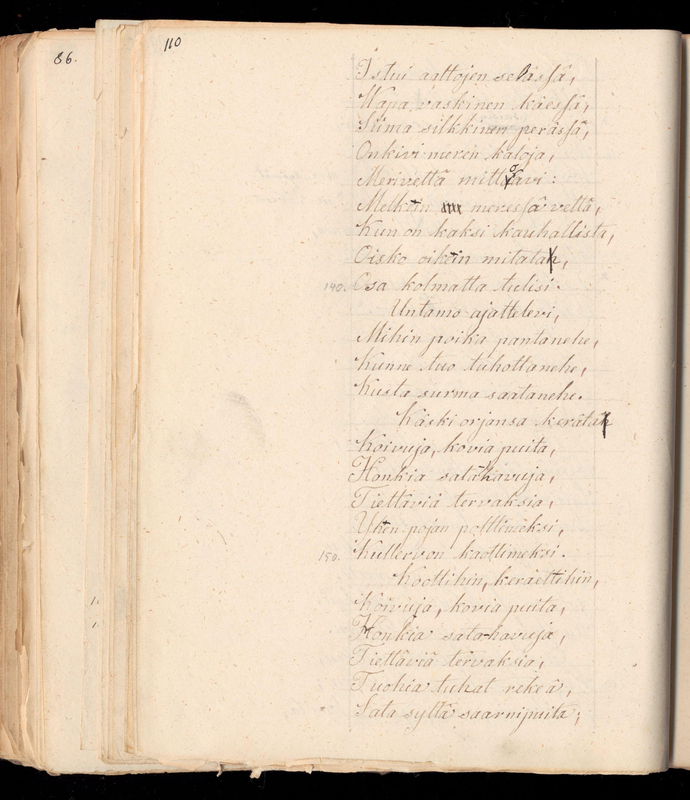 86.
110
Istui aaltojen selässä,
Wapa vaskinen käessä,
Siima silkkinen perässä,
Onkivi meren kaloja,
Merivettä mittoavi:
Melkein meressä vettä,
Kun on kaksi kauhallista,
Oisko oikein mitata,
140. Osa kolmatta tulisi.
Untamo ajattelevi,
Mihin poika pantanehe,
Kunne tuo tuhottanehe,
Kusta surma saatanehe.
Käski orjansa kerätä
Koivuja, kovia puita,
Honkia satahavuja,
Tiettäviä tervaksia,
Yhen pojan polttimeksi,
150. Kullervon kaottimeksi.
Koottihin, keräettihin,
Koivuja, kovia puita,
Honkia sata-havuja,
Tiettäviä tervaksia,
Tuohia tuhat rekeä,
Sata syltä saarnipuita;